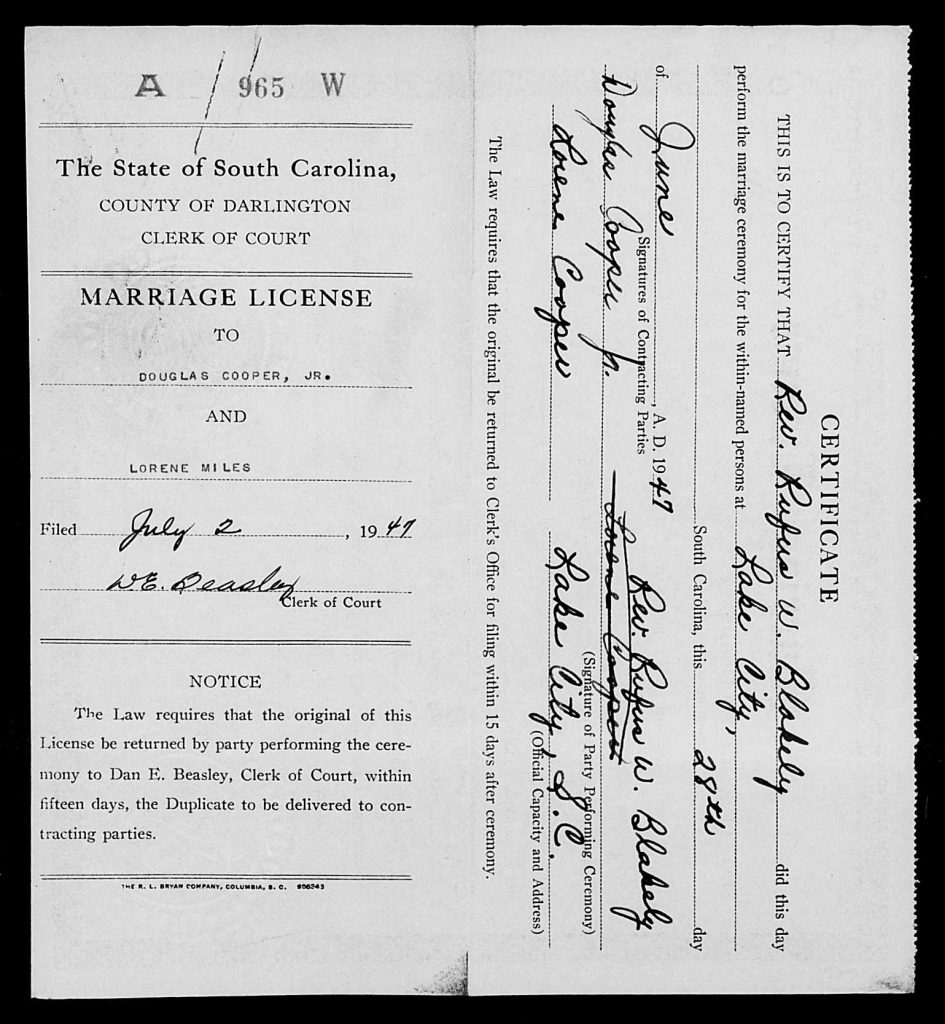 A 965 W
The State of South Carolina,
COUNTY OF DARLINGTON
CLERK OF COURT
MARRIAGE LICENSE
TO
DOUGLAS COOPER, JR.
AND
LORENE MILES
Filed July 2, 1947
W.E. Beasley
Clerk of Court
NOTICE
The Law requires that the original of this
License be returned by party performing the cere-
mony to Dan E. Beasley, Clerk of Court, within
fifteen days, the Duplicate to be delivered to con-
tracting parties.
THE R. L. BRYAN COMPANY, COLUMBIA, S. C.
CERTIFICATE
THIS IS TO CERTIFY THAT Rev. Rufus W. Blakely did this day
perform the marriage ceremony for the within-named persons at Lake City,
South Carolina, this 28th day
of June, A. D. 1947 Rev. Rufus W. Blakely
Signatures of Contracting Parties
(Signature of Party Performing Ceremony)
Douglas Cooper Jr. Lorene Cooper
Lorene Cooper Lake City, S.C.
(Official Capacity and Address)
The Law requires that the original be returned to Clerk's Office for filing within 15 days after ceremony.